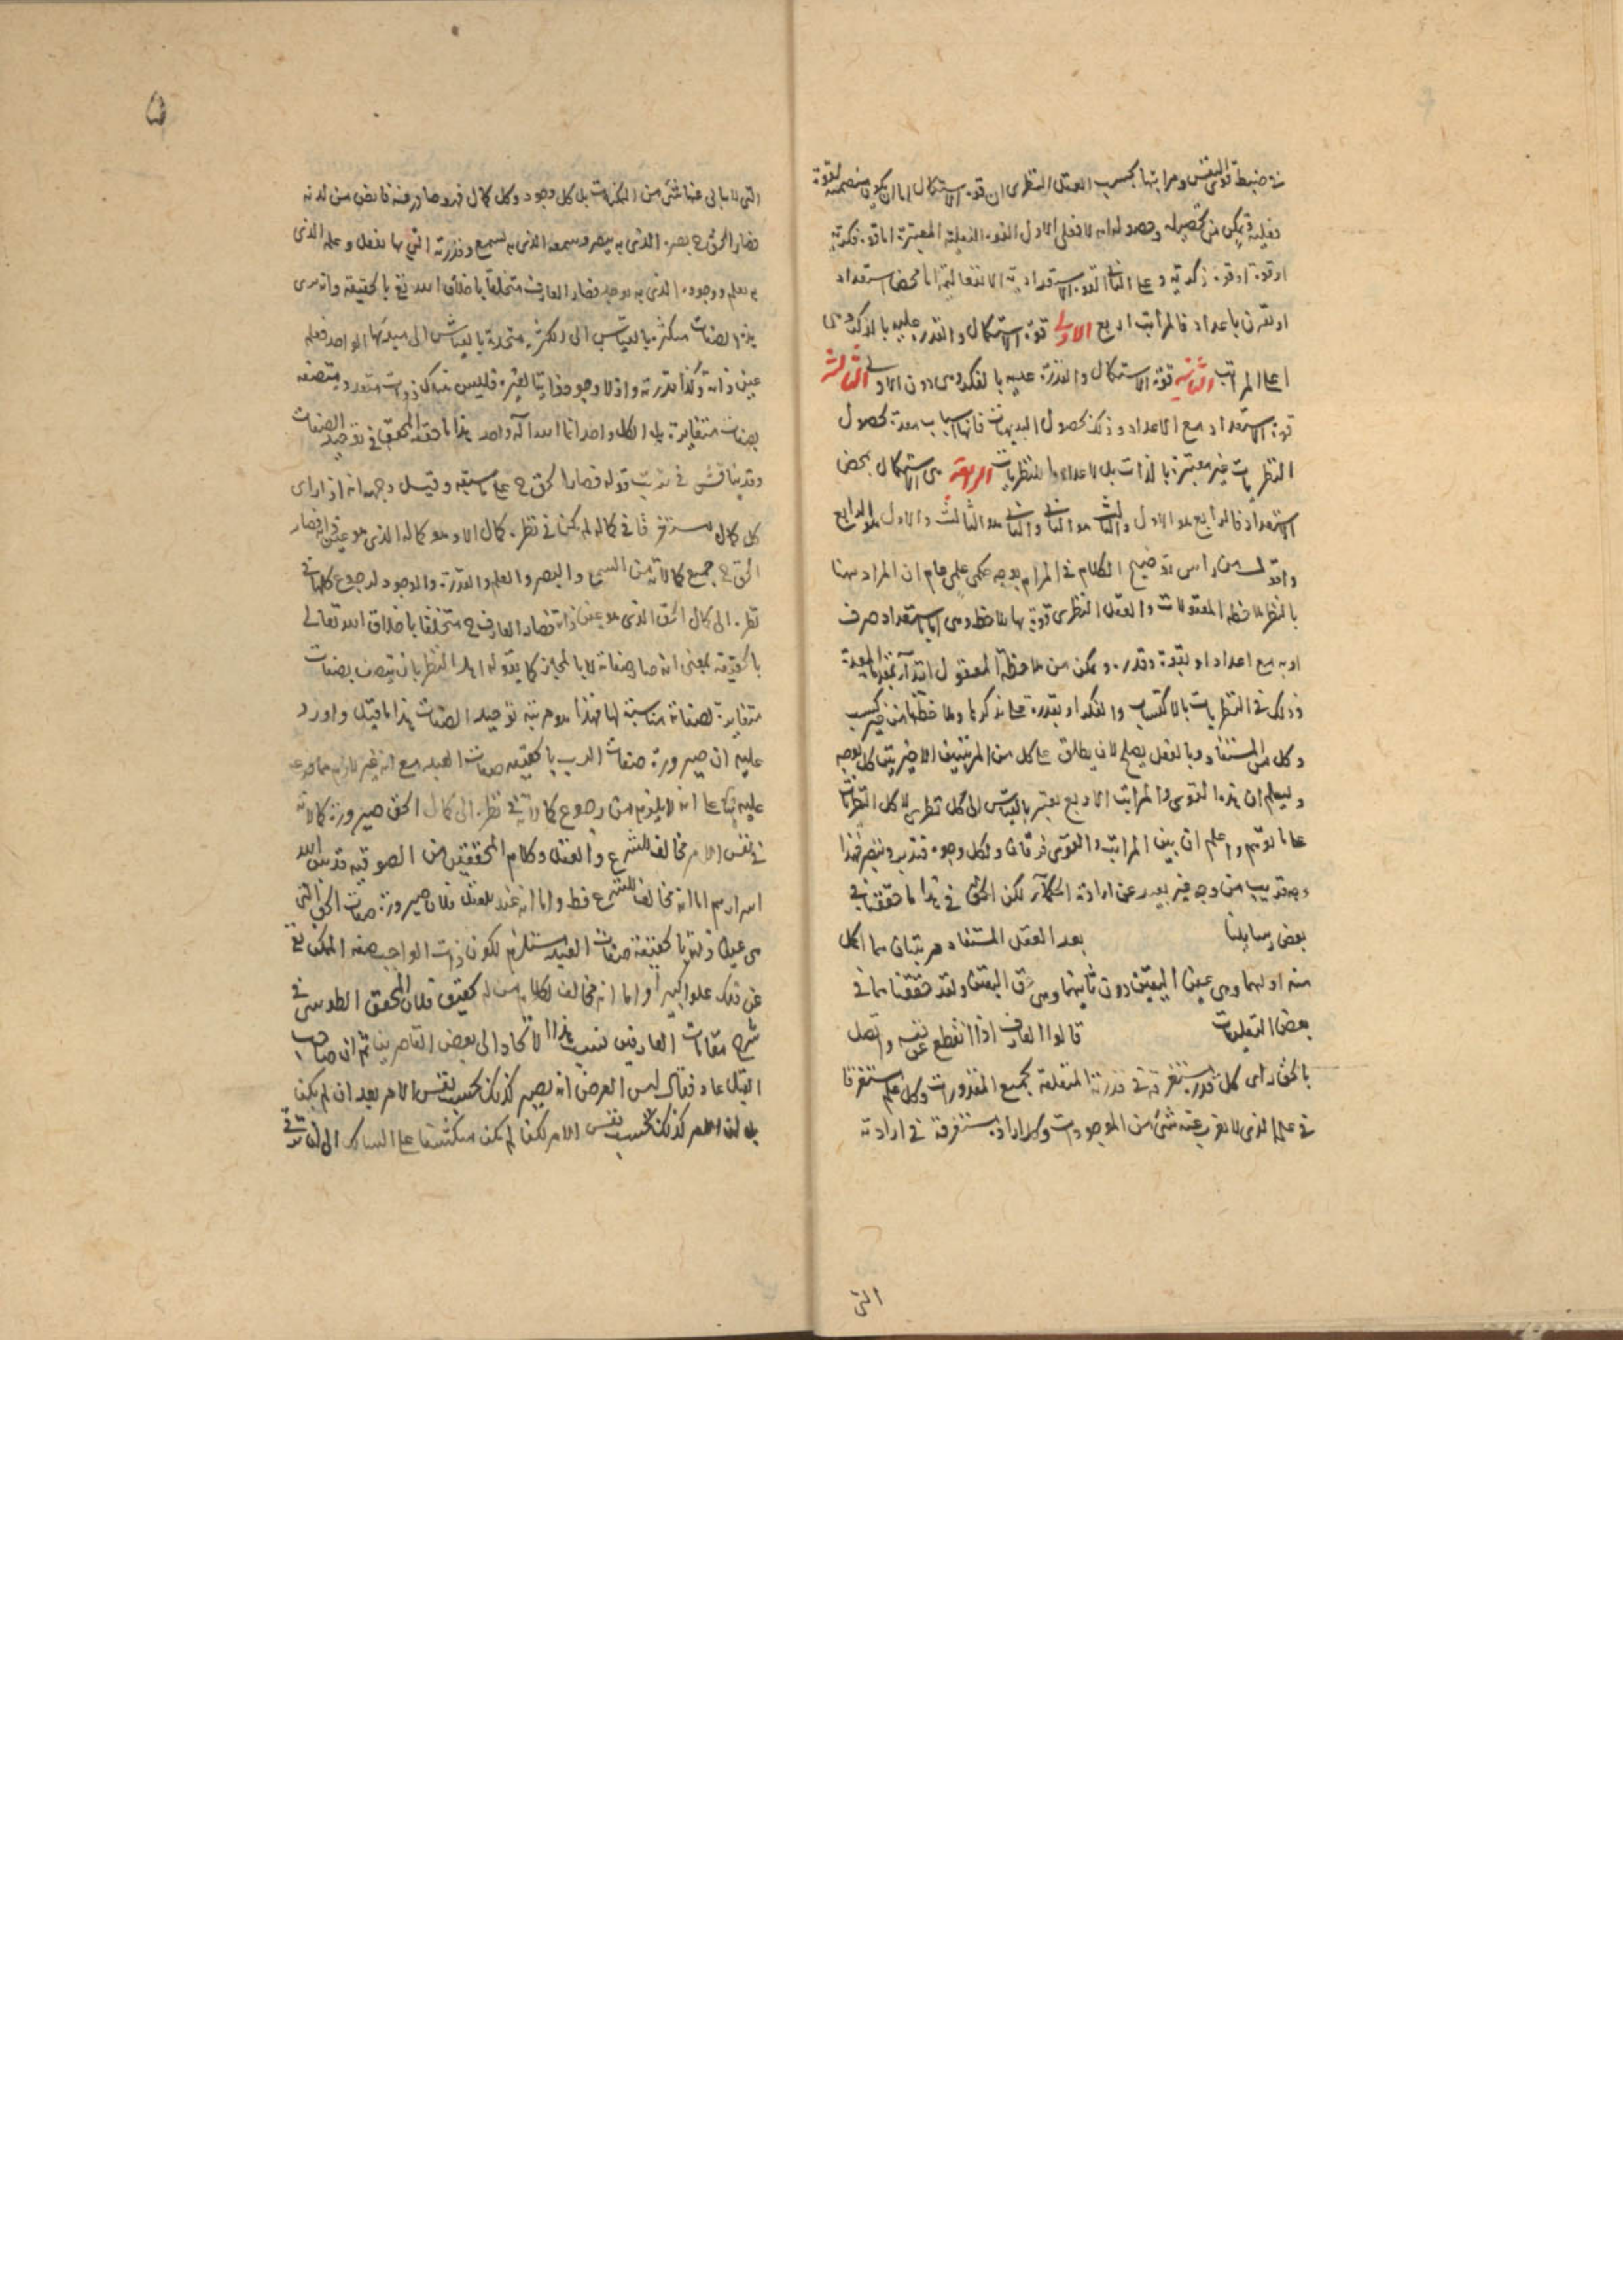 في ضبط قوى النفس ومراتبها بحسب العقل النظري ان قوة الاستكمال اما ان يكون متضمنة لقوة
فعلية يمكن من تحصيله وحصوله ام لا فعلى الاول القوة الفعلية المعتبرة اما قوة فكرية
او قوة ذكرية وعلى الثاني القوة الاستعدادية الانفعالية اما محض استعداد
او تقرن باعداد فالمراتب اربع الاولى قوة الاستكمال والقدرة عليه بالذكر وهى
اعلى المراتب الثانية قوة الاستكمال والقدرة عليه بالفكر وهى دون الاولى الثالثة
قوة الاستعداد مع الاعداد وذلك بحصول البديهيات فانها اسباب معدة لحصول
النظريات غير معتبرة بالذات بل لاعدادها للنظريات الرابعة هى الاستكمال بمحض
الاستعداد فالرابع هو الاول والثالث هو الثاني والثاني هو الثالث والاول هو الرابع
واقول من راس توضيح الكلام في المرام بوجه حكمى علمى عام ان المراد هنا
بالنظر ملاحظة المعقولات والعقل النظرى قوة بها يلاحظ وهى اما استعداد صرف
او به مع اعداد او بقوة وقدرة وتمكن من ملاحظة المعقول ابتداء بمقدماته المعدة
وذلك في النظريات بالاكتساب والفكر او بقدرة على تذكرها وملاحظتها من غير كسب
وكل من المستفاد وبالفعل يصلح لان يطلق على كل من المرتبتين الاخيرتين كل بوجه
وليعلم ان هذه القوى والمراتب الاربع يعتبر بالقياس الى كل نظرى لا كل النظريات
على ما توهم واعلم ان بين المراتب والقوى فرقان ولكل وجوه فتدبر وتبصر فهذا
وجه قريب من وجه غير بعيد عن ارادة الحكماء لكن الحق في هذا ما حققنا في
بعض رسايلنا بعد العقل المستفاد مرتبتان هما اكمل
منه اوليهما وهى عين اليقين دون ثانيتهما وهى حق اليقين ولقد حققناهما في
بعض التعليقات قالوا العارف اذا انقطع عن نفسه واتصل
بالحق راى كل قدرة مستغرقة في قدرته المتعلقة بجميع المقدورات وكل علم مستغرقا
في علمه الذي لا يعزب عنه شئ من الموجودات وكل ارادة مستغرقة في ارادته
التى
۵
التى لا يتأبى عنها شئ من الممكنات بل كل وجود وكل كمال فهو صادر منه فائض من لدنه
فصار الحق ح بصره الذى به يبصر وسمعه الذى به يسمع وقدرته التى بها يفعل وعلمه الذى
به يعلم ووجوده الذى به يوجد فصار العارف متخلقا باخلاق الله تع بالحقيقة وانه يرى
هذه الصفات متكثرة بالقياس الى الكثرة متحدة بالقياس الى مبدئها الواحد فعلمه
عين ذاته وكذا قدرته واذ لا وجود ذاتيا لغيره فليس هناك ذوات متعددة متصفة
بصفات متغايرة بل الكل واحد انما الله اله واحد هذا ما حققه المحقق في توحيد الصفات
وقد يناقش في ترتيب قوله فصار الحق ح على ما سبقه وقيل وجهه انه اذا راى
كل كمال مستغرقا في كماله لم يكن في نظره كمال الا وهو كماله الذى هو عين ذاته فصار
الحق ح جميع كمالاته من السمع والبصر والعلم والقدرة والوجود لرجوع كلها في
نظره الى كمال الحق الذى هو عين ذاته فصار العارف ح متخلقا باخلاق الله تعالى
بالحقيقة بمعنى انه صار صفاته لا بالمجاز كما يقوله اهل النظر بان يتصف بصفات
متغايرة لصفاته مناسبة لها فهذا هو مرتبة توحيد الصفات هذا ما قيل واورد
عليه ان صيرورة صفات الرب بالحقيقة صفات العبد مع انه غير لازم مما فرعه
عليه بناء على انه لا يلزم من رجوع كمالاته في نظره الى كمال الحق صيرورة كمالاته
في نفس الامر مخالف للشرع والعقل وكلام المحققين من الصوفية قدس الله
اسرارهم اما انه مخالف للشرع فظ واما انه عند العقل فلان صيرورة صفات الحق التى
هى عين ذاته بالحقيقة صفات العبد مستلزم لكون ذات الواجب صفة الممكن تع
عن ذلك علوا كبيرا واما انه مخالف لكلام من له تحقيق فلان المحقق الطوسى في
شرح مقامات العارفين نسب هذا الاتحاد الى بعض القاصرين ثم ان صاحب
القيل عاد فقال ليس الغرض انه يصير كذلك بحسب نفس الامر بعد ان لم يكن
بل ان الامر كذلك بحسب نفس الامر لكنه لم يكن منكشفا على السالك الى ان ترقى